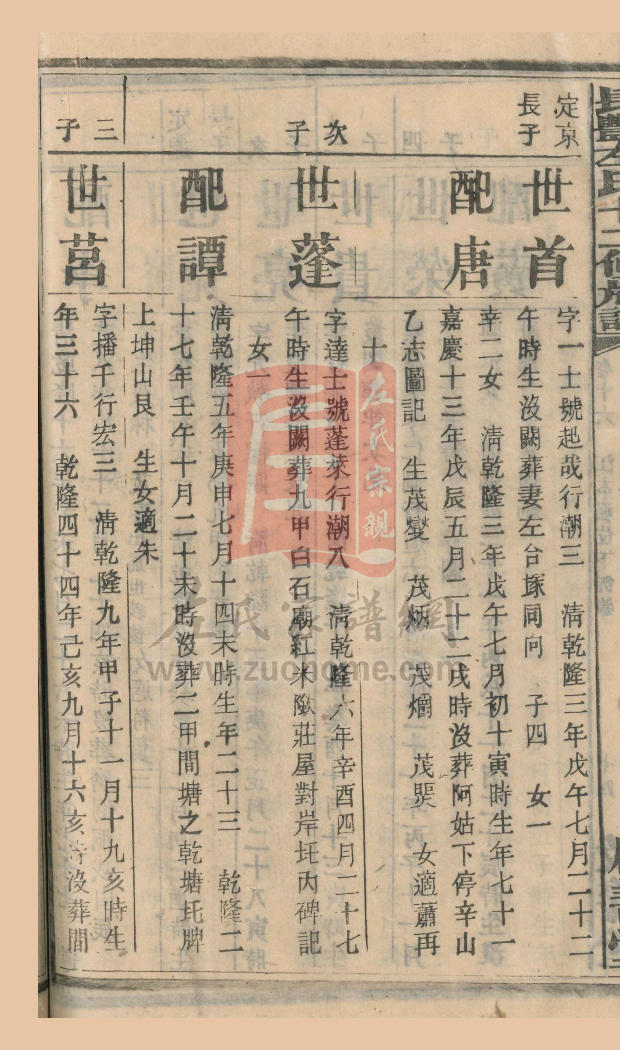 長豐左氏十二修族譜
定京
長子
世首
字一士號起哉行潮三 清乾隆三年戊午七月二十二
午時生沒闕葬妻左台塚同向 子四 女一
配唐
幸二女 清乾隆三年戊午七月初十寅時生年七十一
嘉慶十三年戊辰五月二十二戌時沒葬阿姑下停辛山
乙志圖記 生茂燮 茂炳 茂爝 茂煚 女適蕭再
十
次子
世蓬
字達士號蓬萊行潮八 清乾隆六年辛酉四月二十七
午時生沒闕葬九甲白石廟紅米歐莊屋對岸圫內碑記
女一
配譚
清乾隆五年庚申七月十四未時生年二十三 乾隆二
十七年壬午十月二十未時沒葬二甲間塘之乾塘圫牌
上坤山艮 生女適朱
三子
世莒
字播千行宏三 清乾隆九年甲子十一月十九亥時生
年三十六 乾隆四十四年己亥九月十六亥時沒葬間
左氏宗親
左氏家譜網
www.zuohome.com